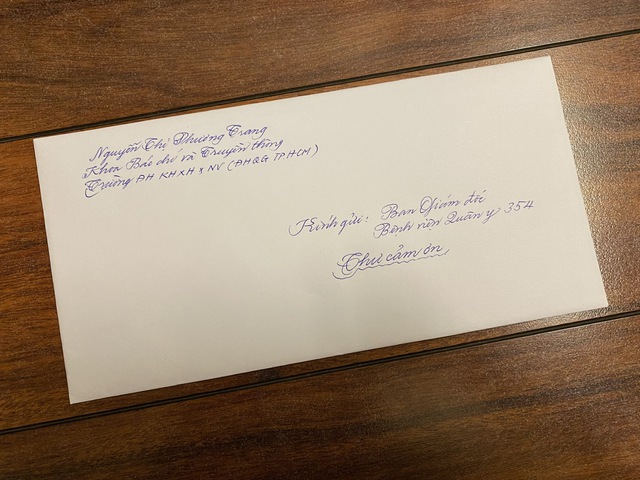 Nguyễn Thị Phương Trang
Khoa Báo chí và Truyền thông
Trường ĐH KHXH & NV (ĐHQG TPHCM)
Kính gửi: Ban Giám đốc
Bệnh viện Quân y 354
Thư cảm ơn